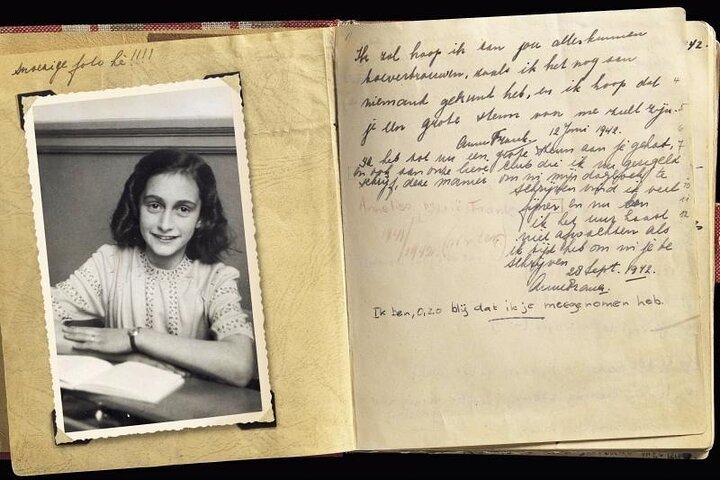 Snoezige foto hè!!!!
42.
Ik zal hoop ik aan jou alles kunnen
toevertrouwen, zoals ik het nog aan
niemand gekunt heb, en ik hoop dat
je een grote steun van me zult zijn.
Anne Frank. 12 Juni 1942.
Ik heb tot nu een grote steun aan je gehad,
en ook aan onze lieve club die ik nu geregeld
schrijf, deze manier om in mijn dagboek te
schrijven vind ik veel
fijner en nu kan
ik het uur haast
niet afwachten als
ik tijd heb om in je te
schrijven.
28 Sept. 1942.
Anne Frank.
Ik ben, O, zo blij dat ik je meegenomen heb.